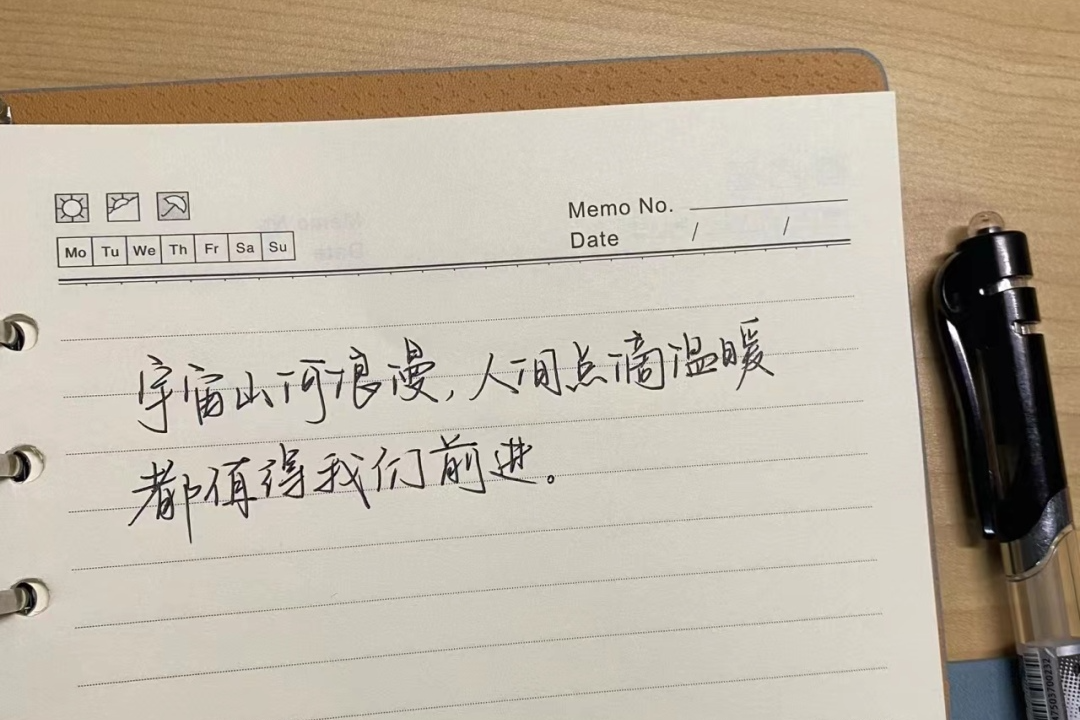 Memo No.
Mo Tu We Th Fr Sa Su
Date / /
宇宙山河浪漫,人间点滴温暖
都值得我们前进。